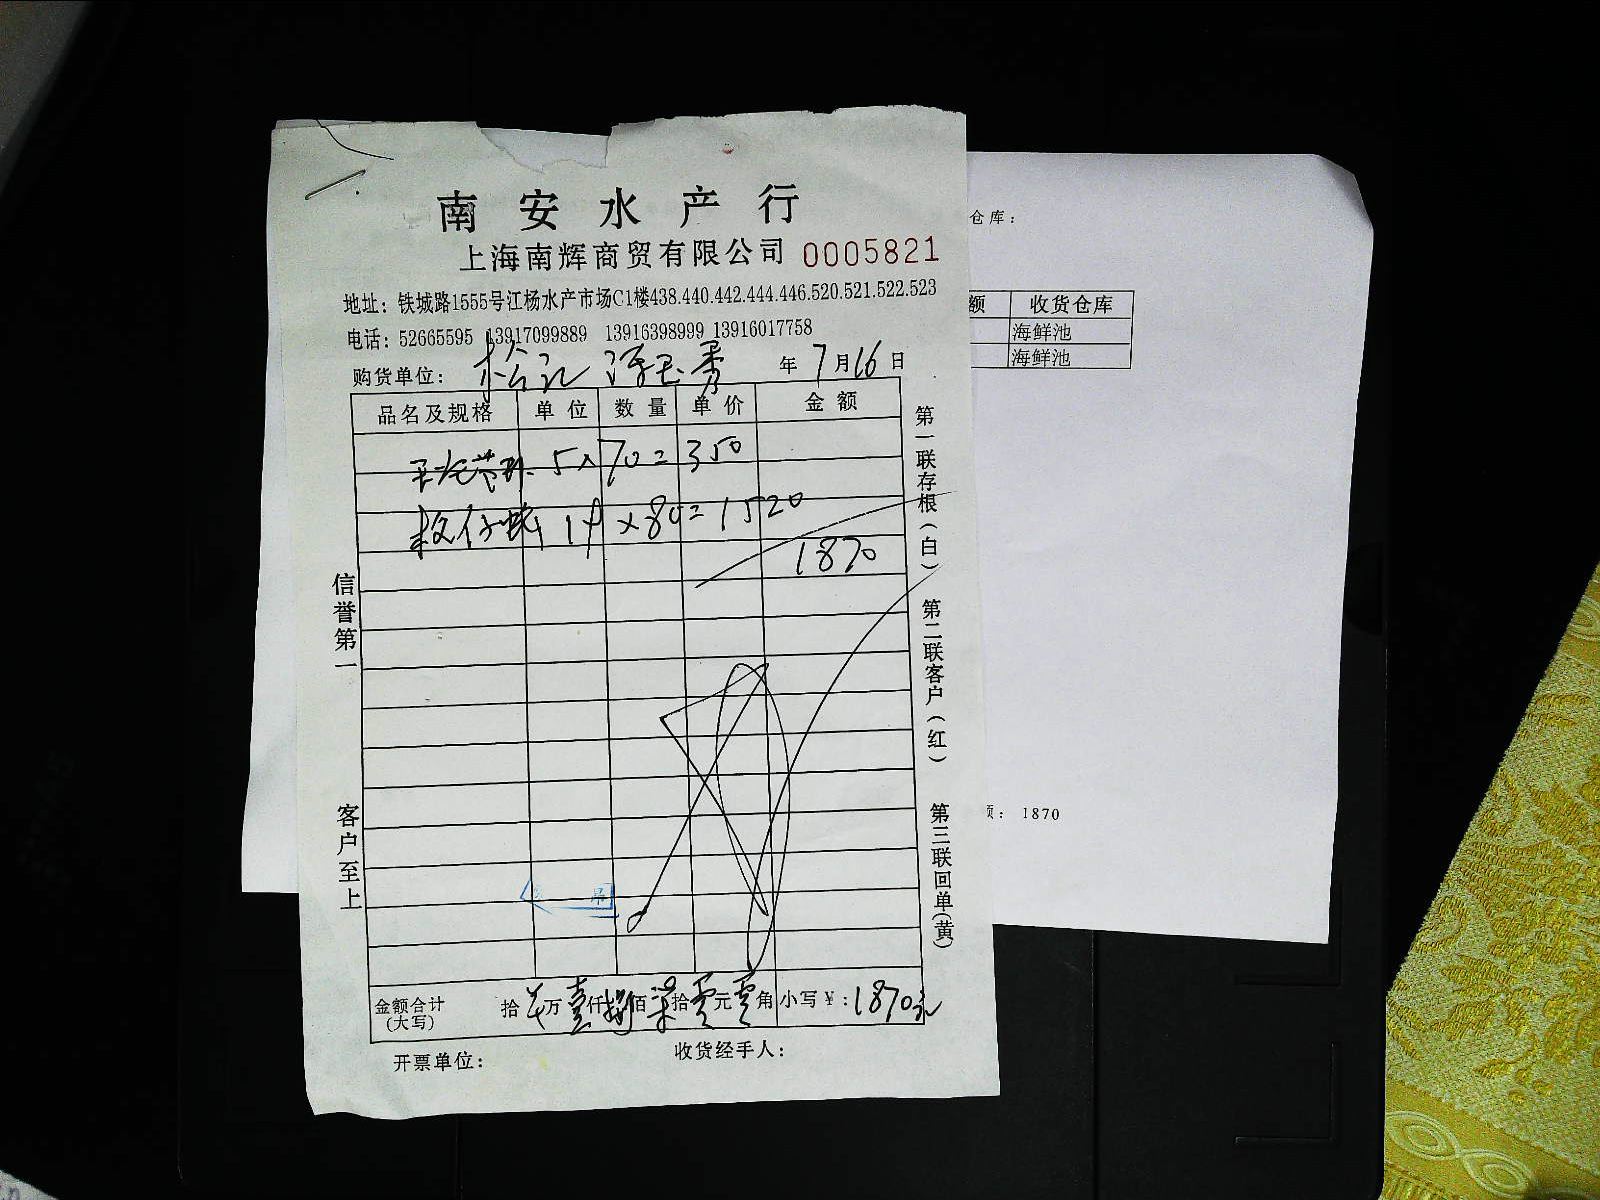 南安水产行
上海南辉商贸有限公司 0005821
地址：铁城路1555号江杨水产市场C1楼438.440.442.444.446.520.521.522.523
电话：52665595 13917099889 13916398999 13916017758
购货单位： 松记 年7月16日
品名及规格 单位 数量 单价 金额
5×70=350
19×80=1520
1870
金额合计(大写) 拾 万壹仟捌佰柒拾零元零角 小写¥：1870元
开票单位： 收货经手人：
信誉第一
客户至上
第一联存根(白)
第二联客户(红)
第三联回单(黄)
仓库：
额 收货仓库
海鲜池
海鲜池
额：1870